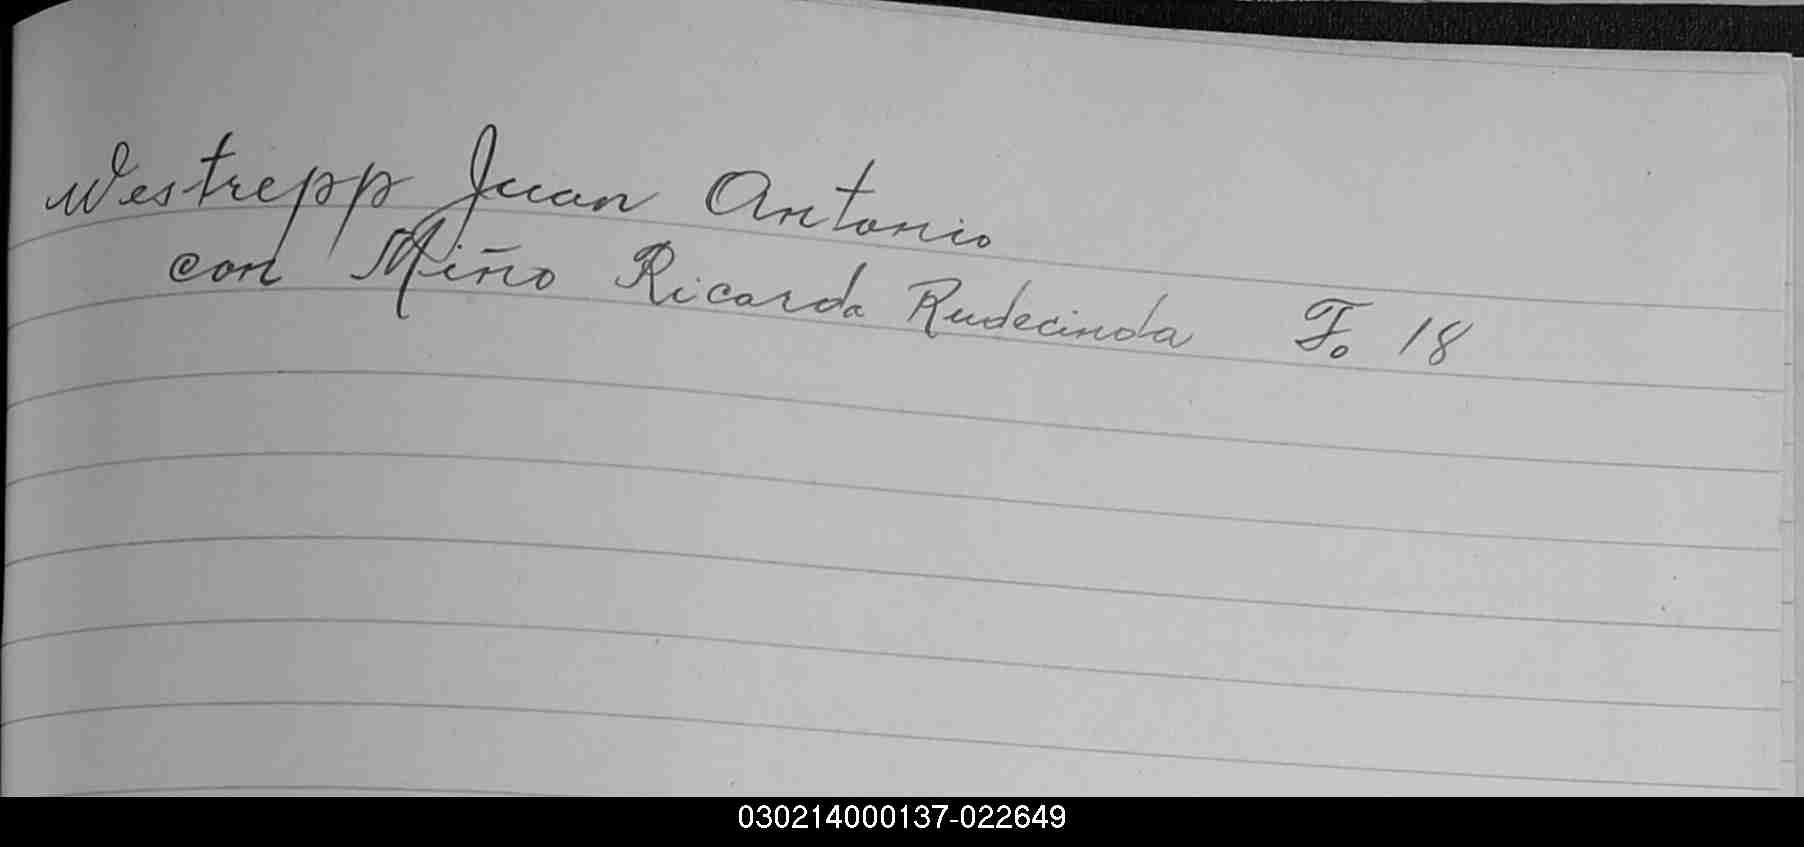 Westrepp Juan Antonio
con Miño Ricarda Rudecinda Fo 18
030214000137-022649